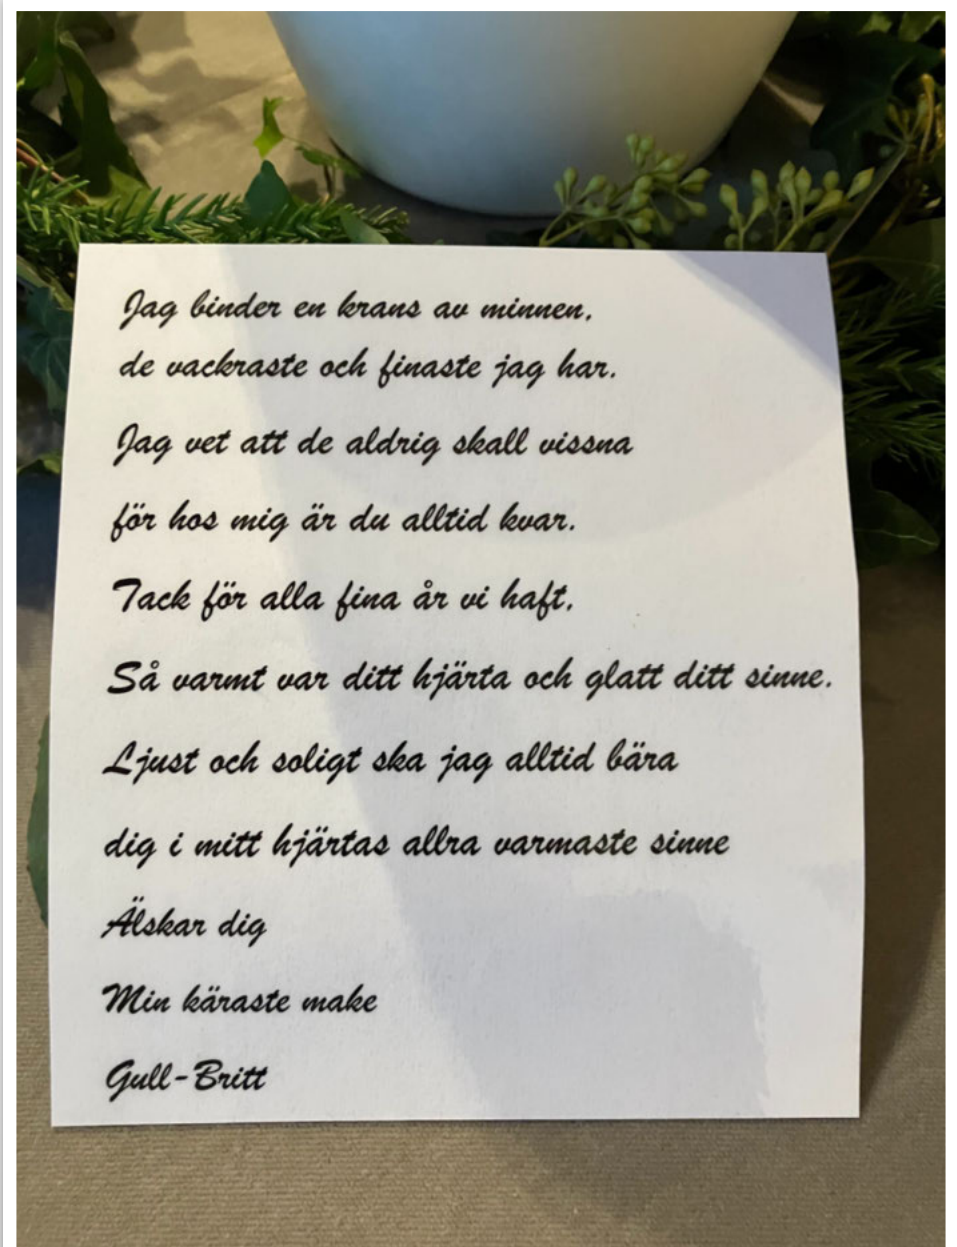 Jag binder en krans av minnen,
de vackraste och finaste jag har.
Jag vet att de aldrig skall vissna
för hos mig är du alltid kvar.
Tack för alla fina år vi haft,
Så varmt var ditt hjärta och glatt ditt sinne.
Ljust och soligt ska jag alltid bära
dig i mitt hjärtas allra varmaste sinne
Älskar dig
Min käraste make
Gull-Britt